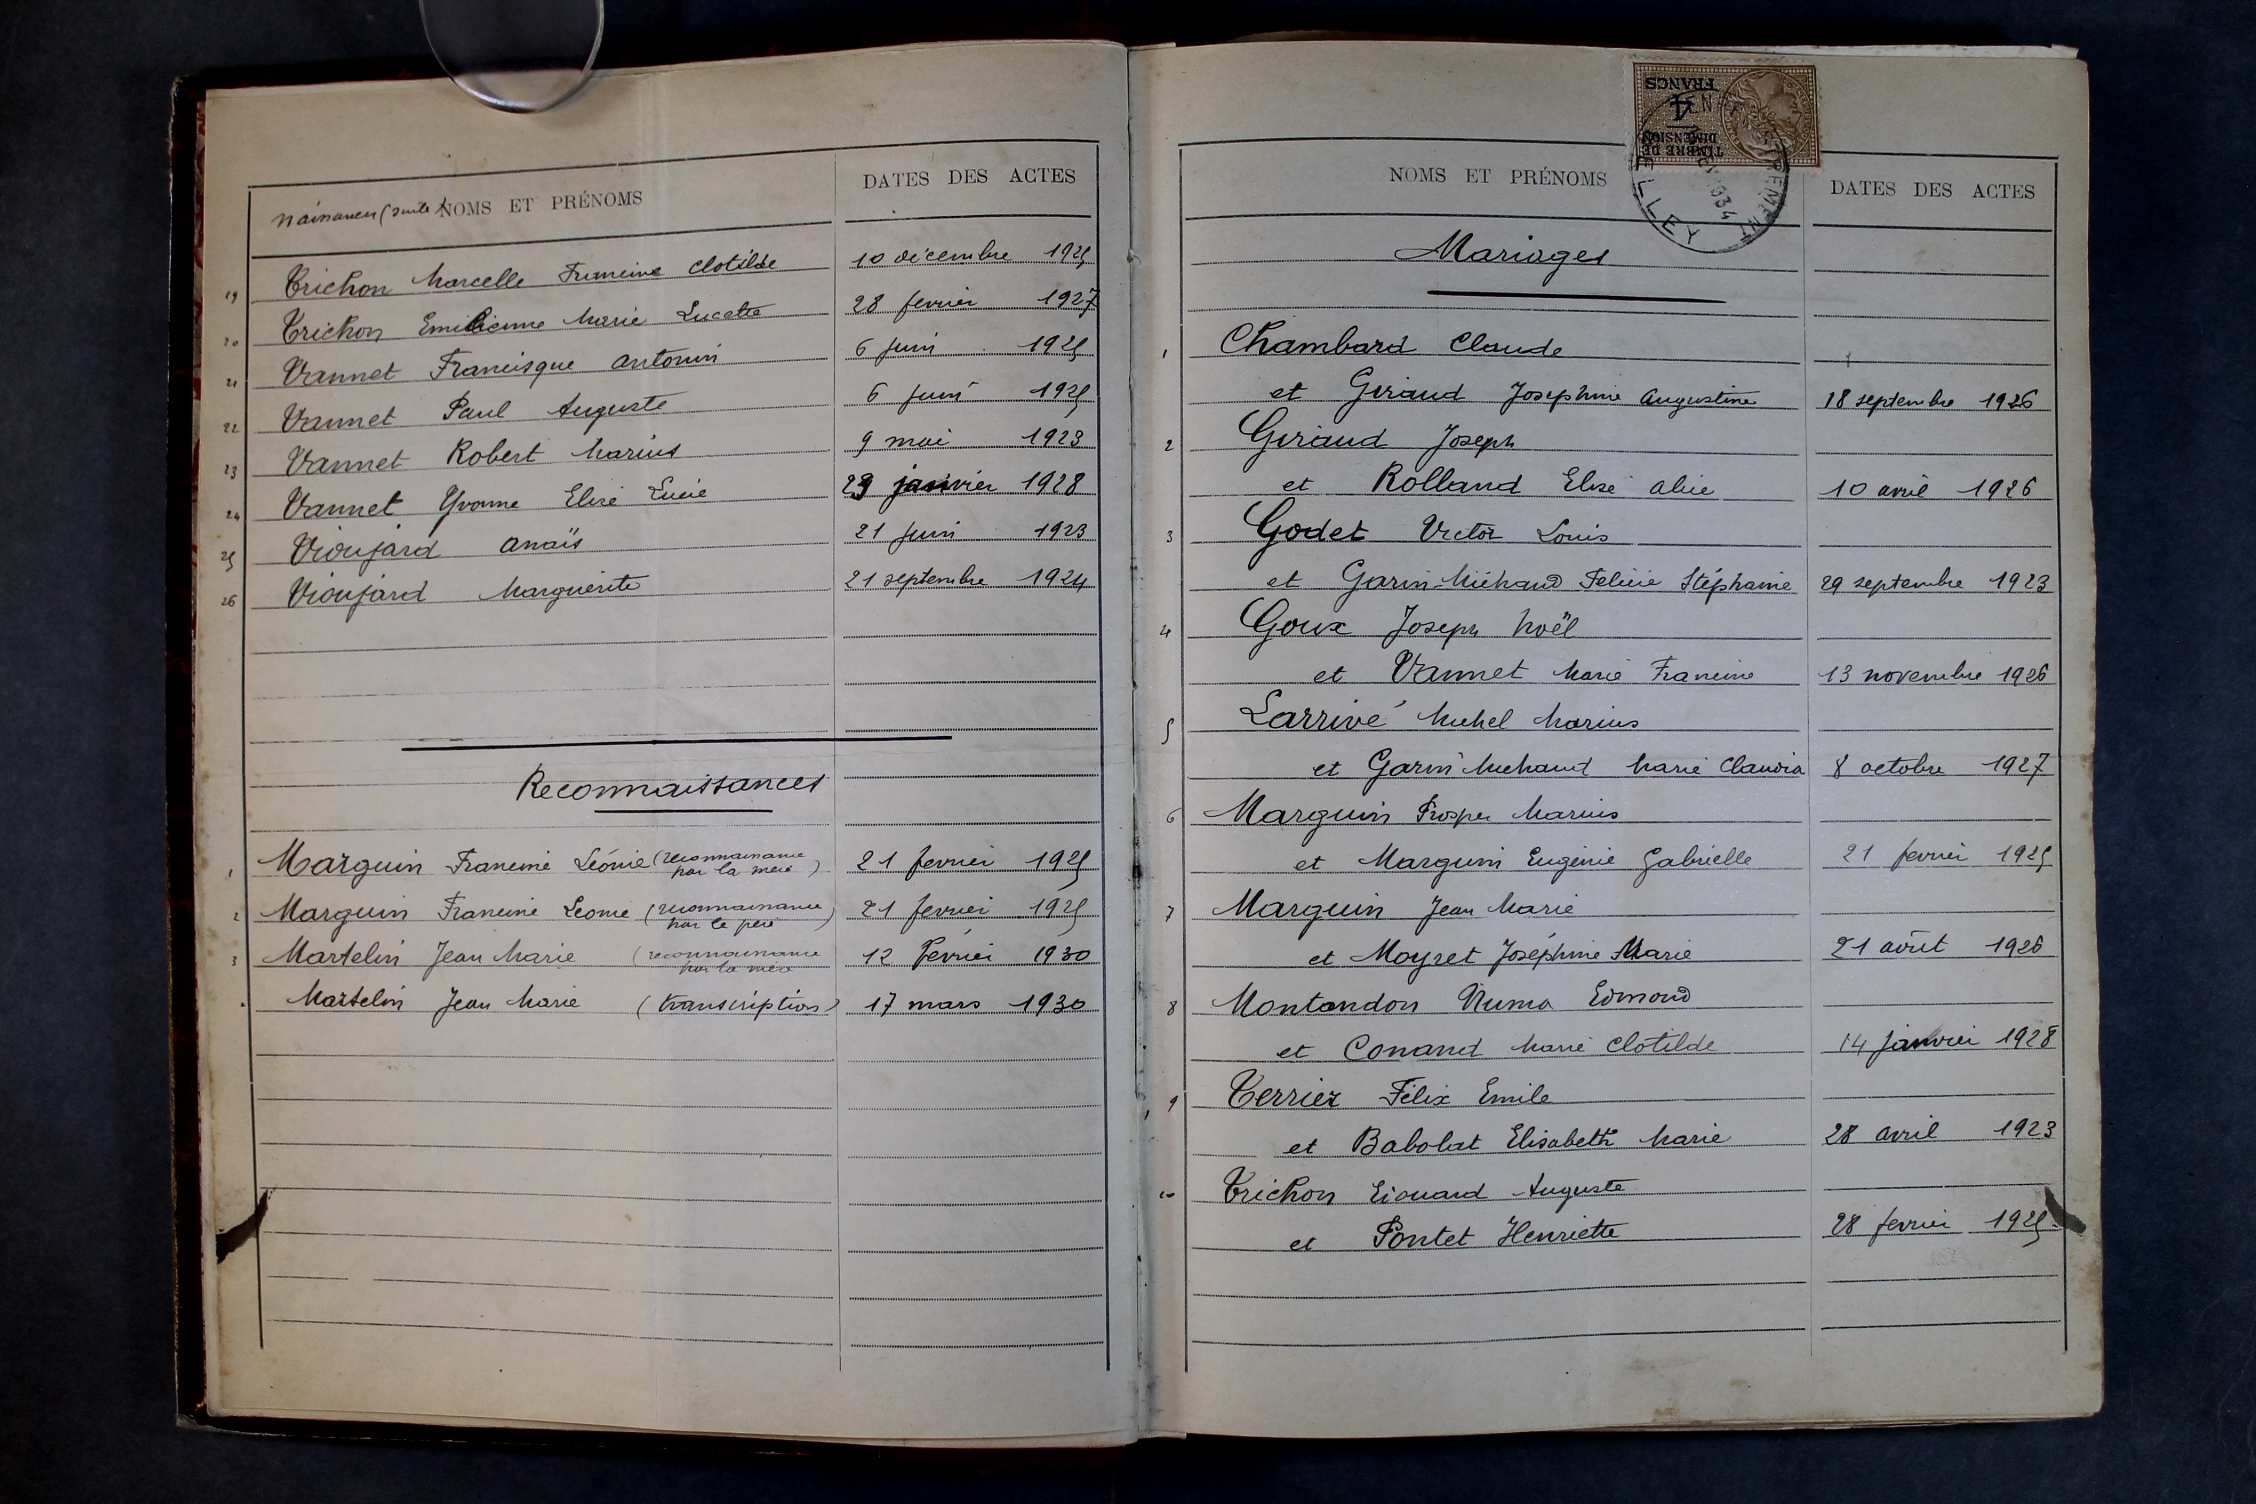 Naissances (suite) NOMS ET PRÉNOMS DATES DES ACTES
19 Trichon Marcelle Francine Clotilde 10 décembre 1925
20 Trichon Emilienne Marie Lucette 28 fevrier 1927
21 Vannet Francisque Antonin 6 juin 1925
22 Vannet Paul Auguste 6 juin 1925
23 Vannet Robert Marius 9 mai 1923
24 Vannet Yvonne Elise Lucie 29 janvier 1928
25 Vioujard Anaïs 21 juin 1923
26 Vioujard Marguerite 21 septembre 1924
Reconnaissances
1 Marguin Francine Léonie (reconnaissance par la mère) 21 fevrier 1925
2 Marguin Francine Leonie (reconnaissance par le père) 21 fevrier 1925
3 Martelin Jean Marie (reconnaissance par la mère 12 Février 1930
Martelin Jean Marie (transcription) 17 mars 1930
TIMBRE DE DIMENSION
4 FRANCS
ENREGISTREMENT
1934
BELLEY
NOMS ET PRÉNOMS DATES DES ACTES
Mariages
1 Chambard Claude
et Giraud Josephine Augustine 18 septembre 1926
2 Giraud Joseph
et Rolland Elise Alice 10 avril 1926
3 Godet Victor Louis
et Garin-Michaud Felicie Stéphanie 29 septembre 1923
4 Goux Joseph Noël
et Vannet Marie Francine 13 novembre 1926
5 Larrivé Michel Marius
et Garin Michaud Marie Claudia 8 octobre 1927
6 Marguin Prosper Marius
et Marguin Eugénie Gabrielle 21 fevrier 1925
7 Marguin Jean Marie
et Moyret Joséphine Marie 21 août 1926
8 Montandon Numa Edmond
et Conand Marie Clotilde 14 janvier 1928
9 Terrier Félix Emile
et Babolat Elisabeth Marie 28 avril 1923
10 Trichon Edouard Auguste
et Pontet Henriette 28 fevrier 1925